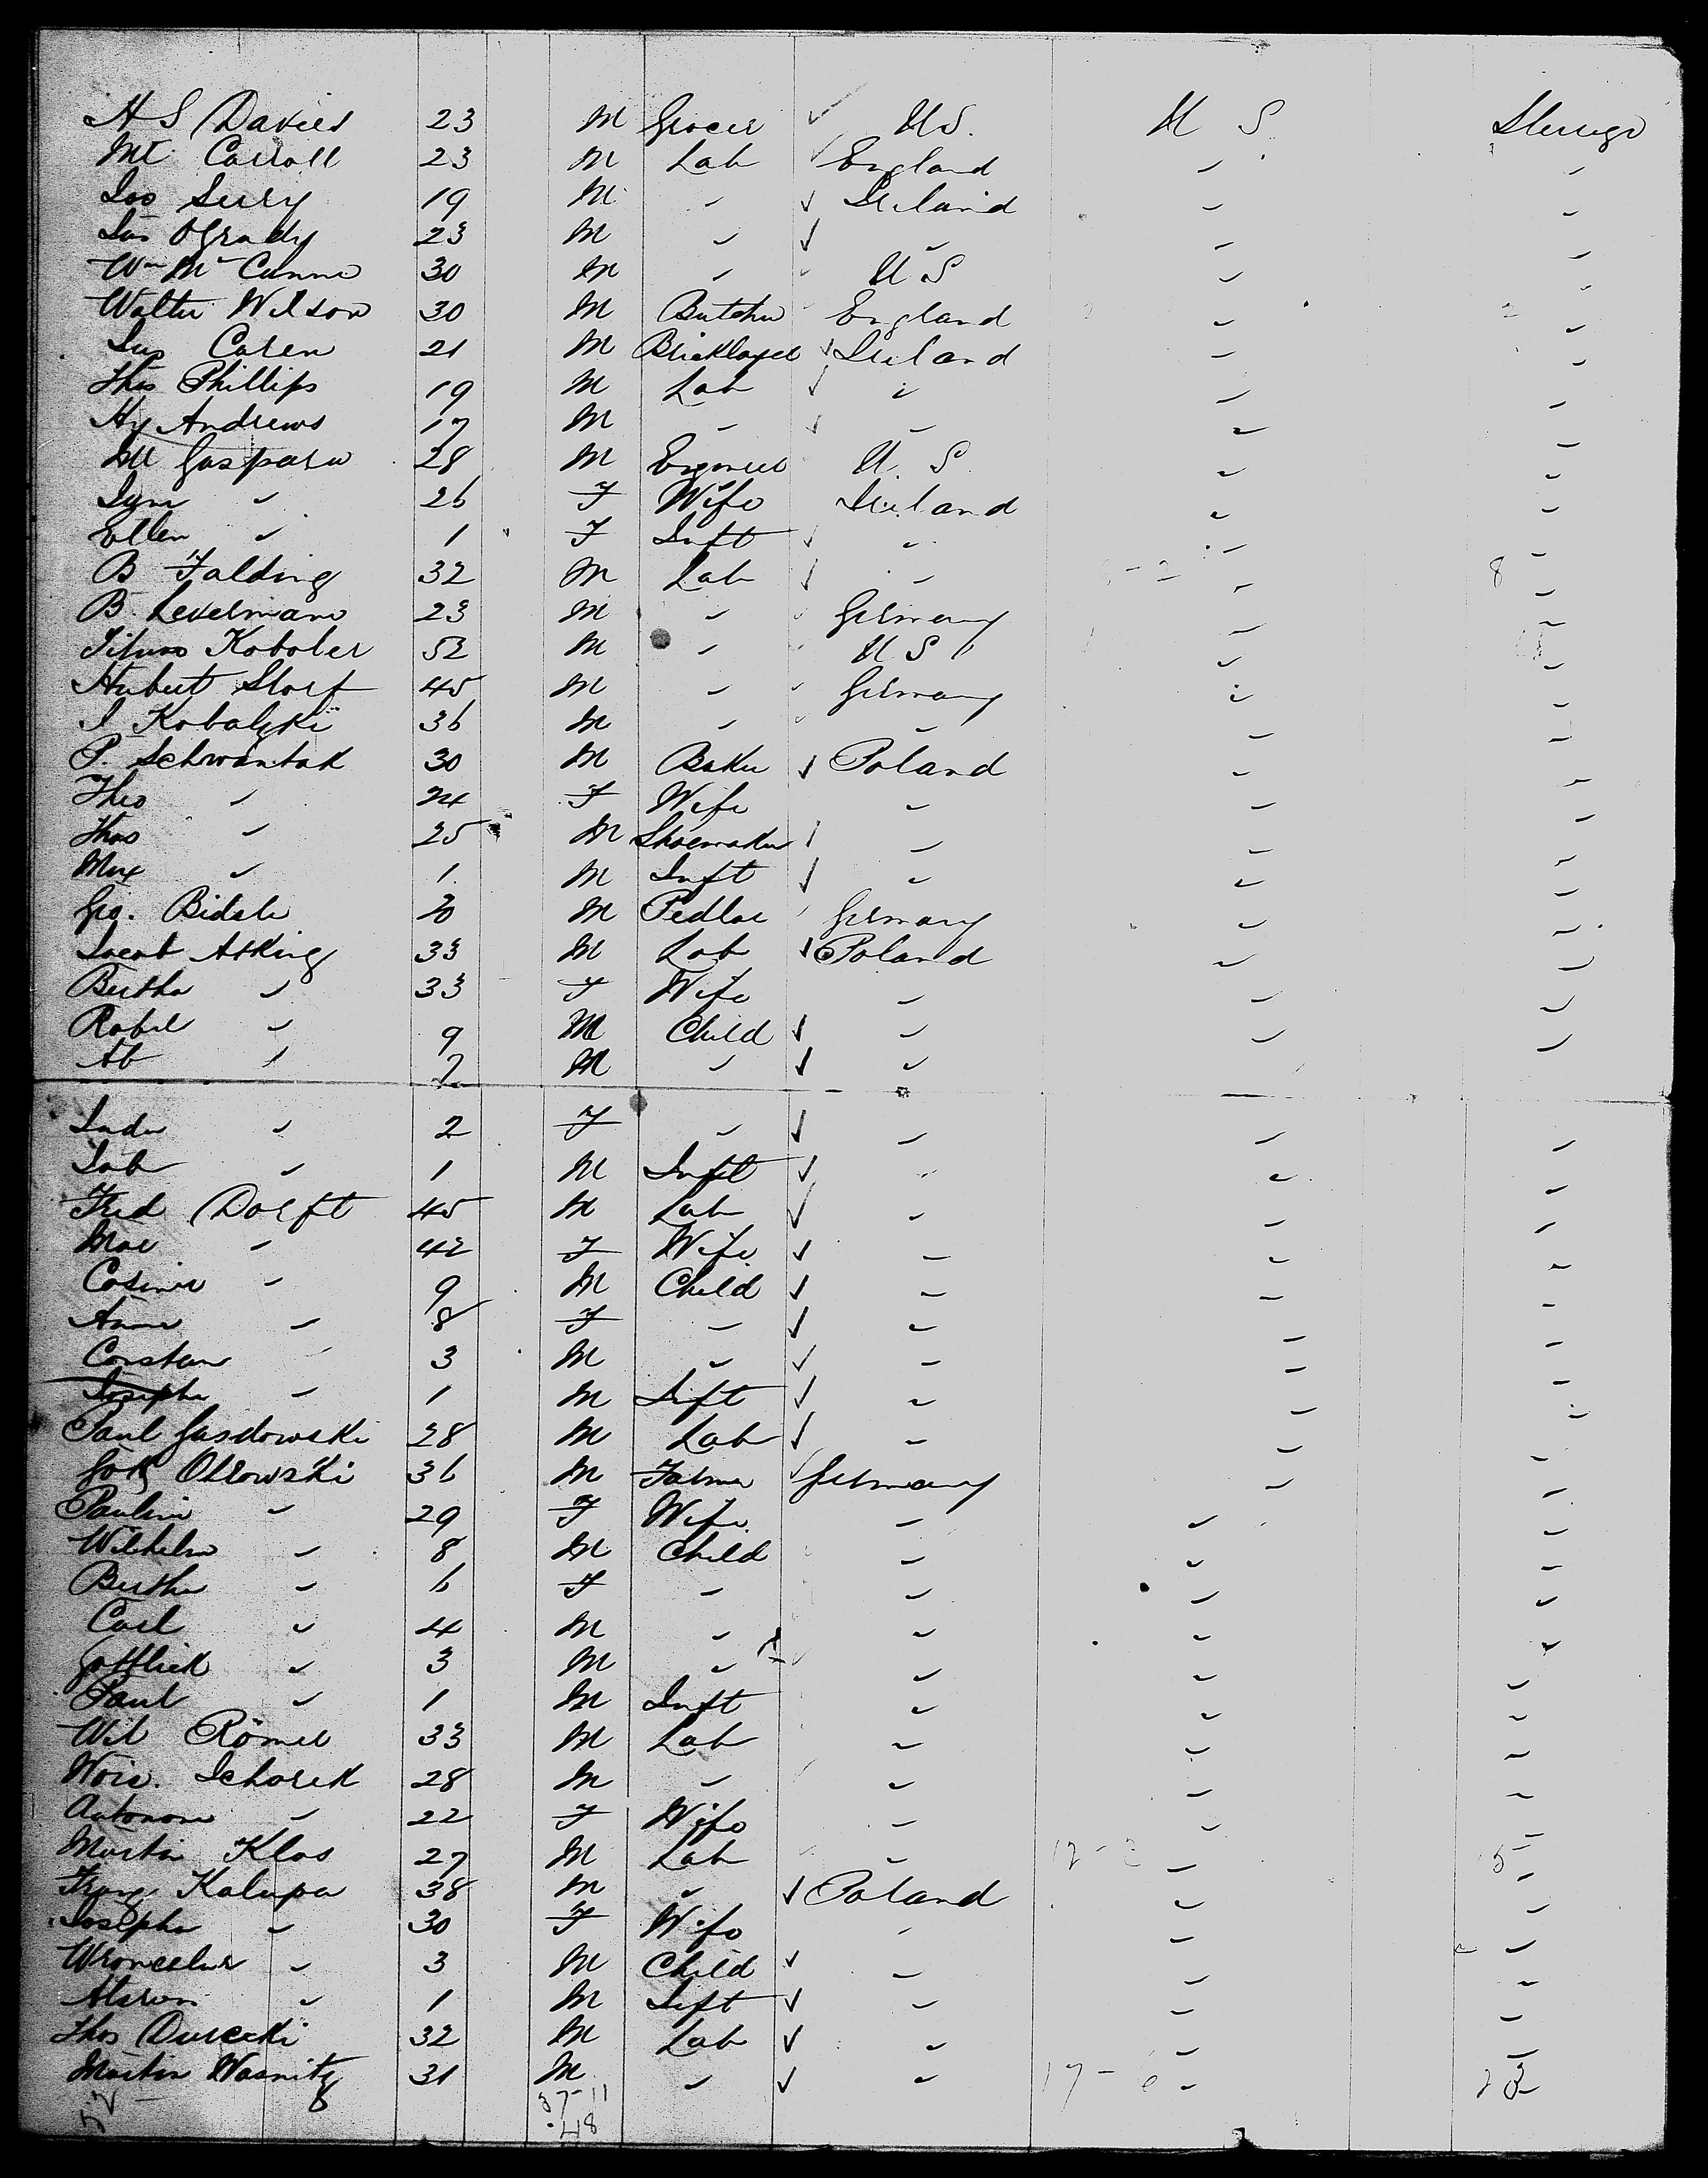 H S Davies 23 M Grocer ✓ U.S. U S Steerage
Mt Carroll 23 M Lab ✓ England " "
Jos 19 M " ✓ Ireland " "
Jas OGrady 23 M " ✓ " " "
Wm Mc Cunne 30 M " U S " "
Walter Wilson 30 M Butcher England " "
Jas Caren 21 M Bricklayer ✓ Ireland " "
Thos Phillips 19 M Lab ✓ " " "
Hy Andrews 17 M " ✓ " " "
M Gaspara 28 M Engineer U. S. " "
" 26 F Wife Ireland " "
Ellen " 1 F Inft ✓ " " "
B Falding 32 M Lab ✓ " " 8 "
B. Levermann 23 M " Germany " "
Kobober 52 M " U S " "
Hubert Storf 45 M " Germany " "
I Kobalzki 36 M " " " "
P. Schwantak 30 M Baker ✓ Poland " "
Theo " 24 F Wife " " "
Thos " 25 M Shoemaker " " "
Max " 1 M Inft ✓ " " "
Geo. Bidale 30 M Pedlar Germany " "
Jacob Atking 33 M Lab ✓ Poland " "
Bertha " 33 F Wife " " "
Robel " 9 M Child ✓ " " "
Ab " 7 M " ✓ " " "
" 2 F " ✓ " " "
Jab " 1 M Inft ✓ " " "
Fred Dorft 45 M Lab ✓ " " "
Mar " 42 F Wife ✓ " " "
Casimir " 9 M Child ✓ " " "
Anna " 8 F " ✓ " " "
Constan " 3 M " ✓ " " "
Josepha " 1 M Inft ✓ " " "
Paul Gasdowski 28 M Lab ✓ " " "
Otrowski 36 M Farmer ✓ Germany " "
Paulina " 29 F Wife " " "
Wilhelm " 8 M Child " " "
Bertha " 6 F " " " "
Carl " 4 M " " " "
Gottlieb " 3 M " " " "
Paul " 1 M Inft " " "
Wil Römer 33 M Lab " " "
Woic. Schorek 28 M " " " "
Antonom " 22 F Wife " " "
Martin Klas 27 M Lab " " "
Franz Kalupa 38 M " ✓ Poland " "
Josepha " 30 F Wife " " "
" 3 M Child ✓ " " "
" 1 M Inft ✓ " " "
Thos Durecki 32 M Lab ✓ " " "
Martin Wasnitz 31 M " ✓ " 17-6 " 23
52 37-11
48